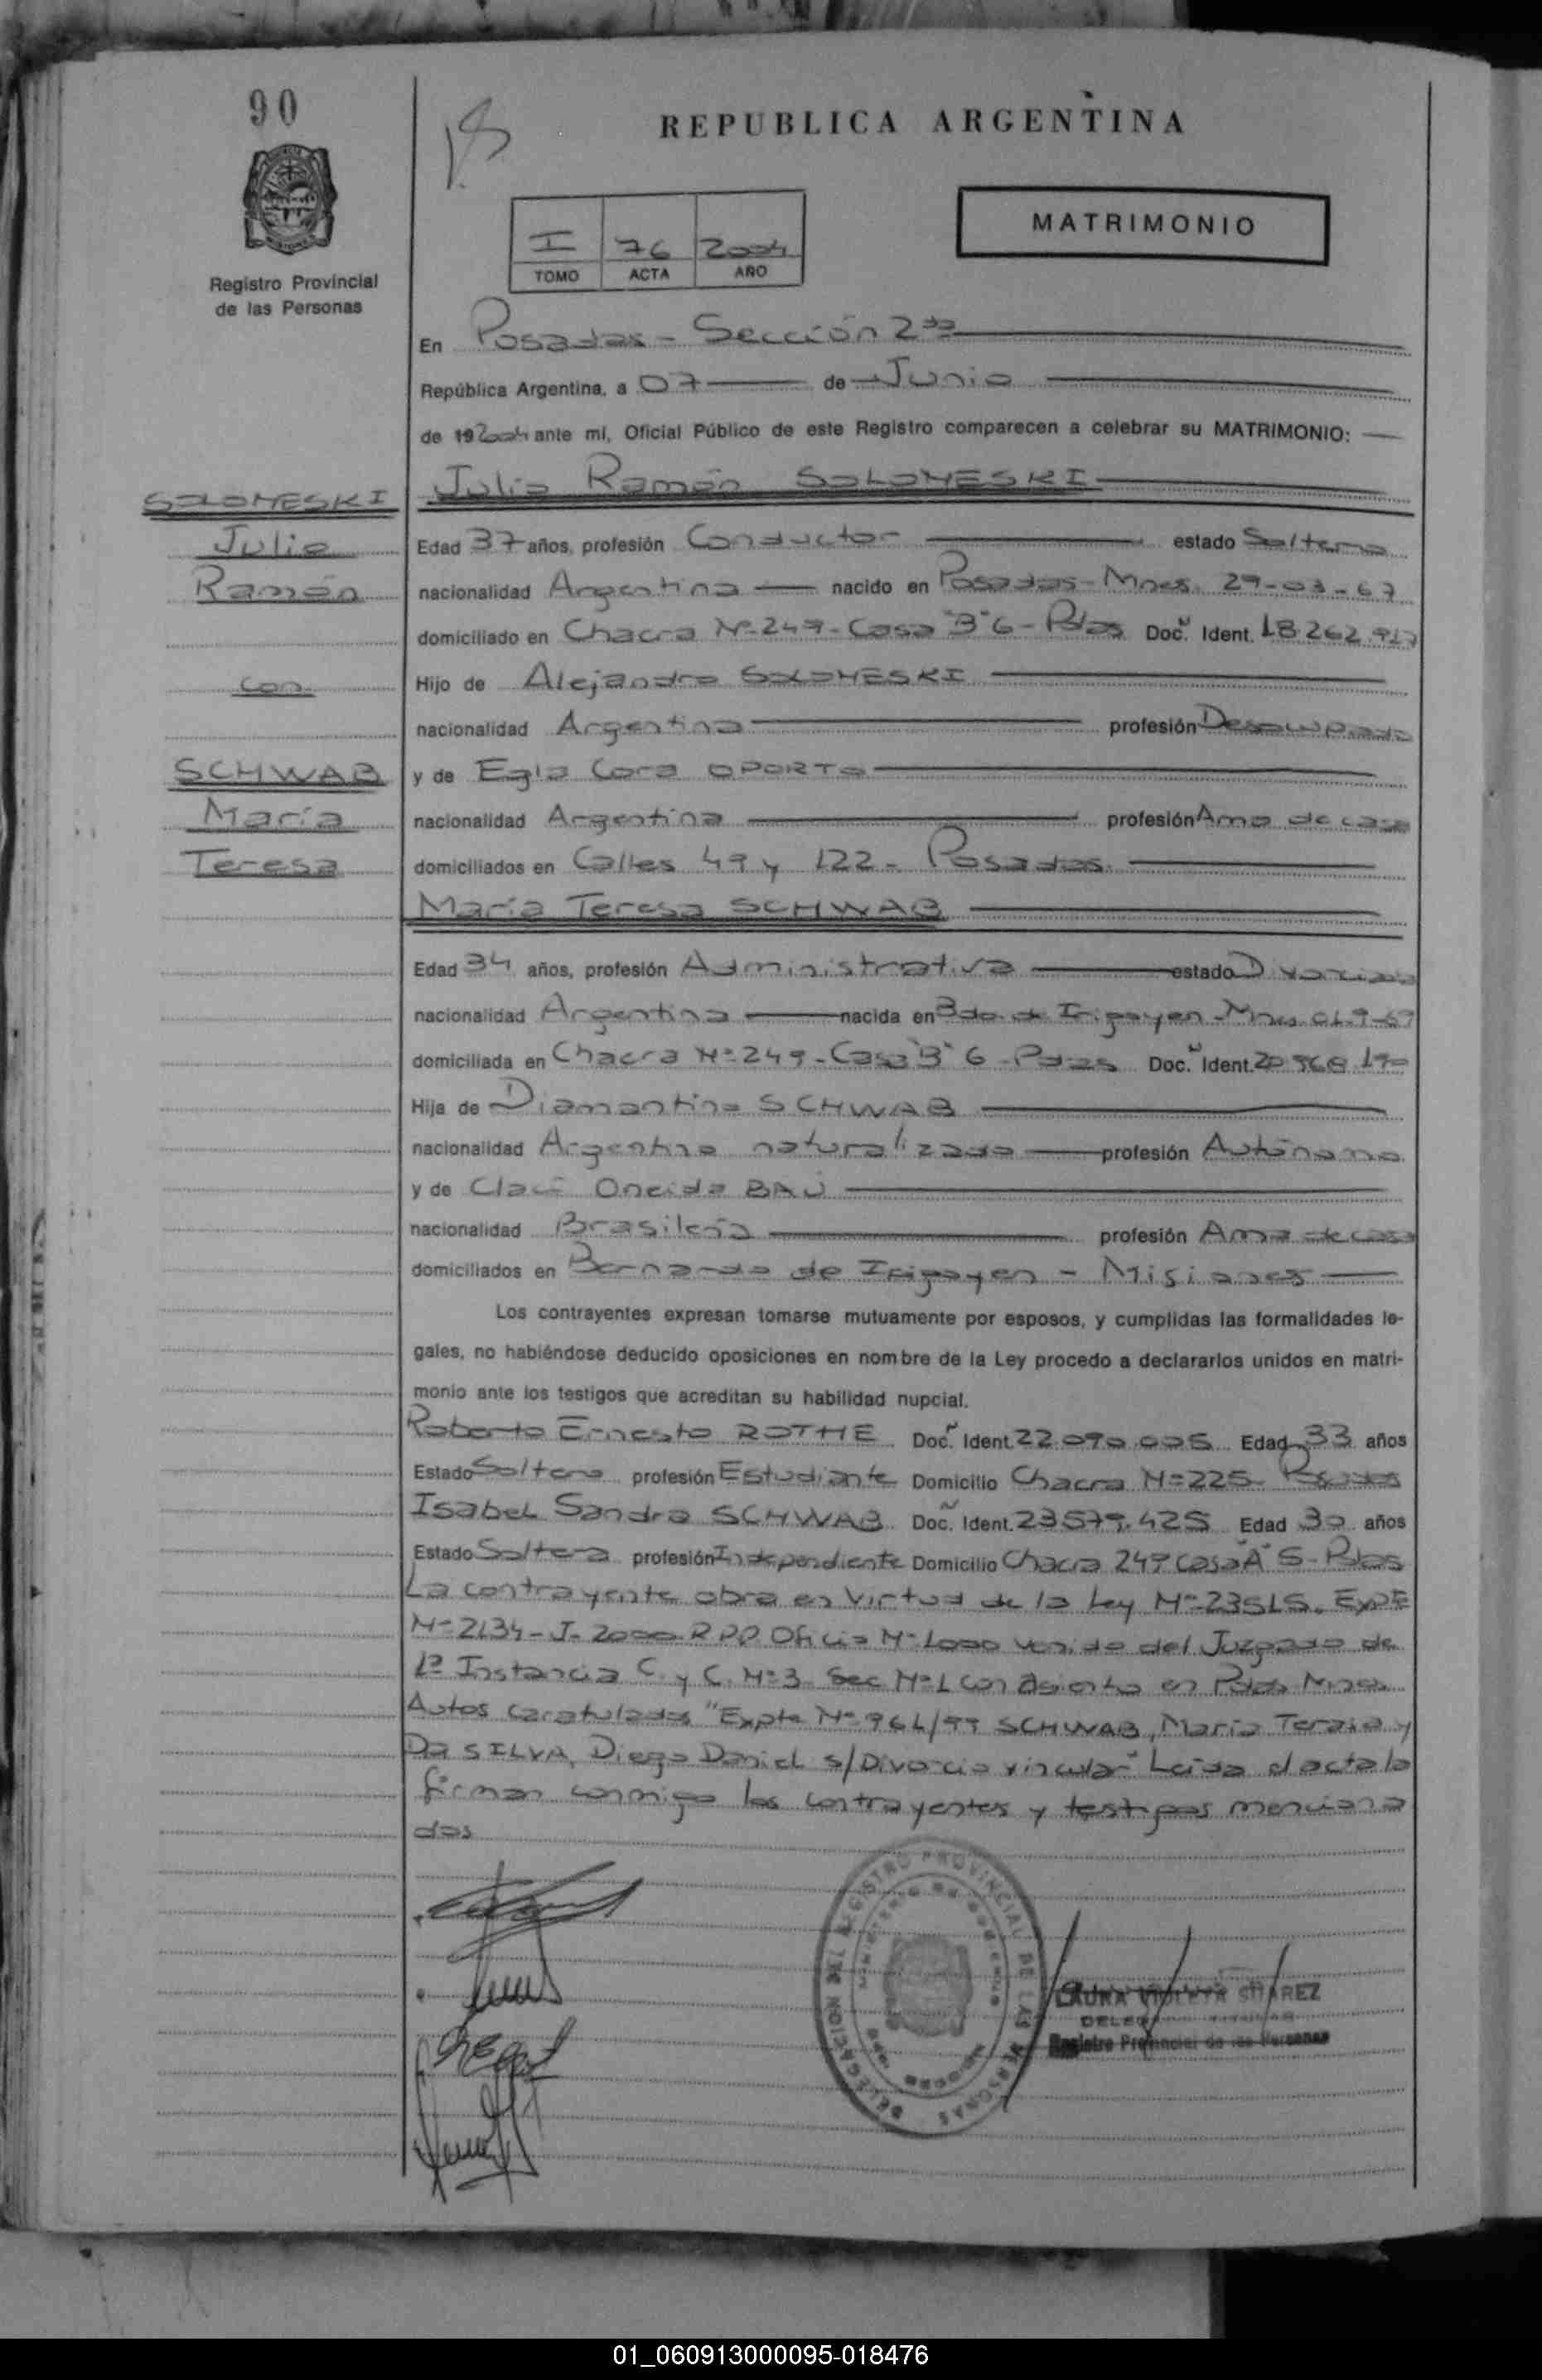 90
REPUBLICA ARGENTINA
I 76 2004
TOMO ACTA AÑO
MATRIMONIO
Registro Provincial
de las Personas
En Posadas - Sección 2da
República Argentina, a 07 de Junio
de 192004 ante mí, Oficial Público de este Registro comparecen a celebrar su MATRIMONIO:
SOLOMESKI
Julio
Ramón
con
SCHWAB
María
Teresa
Julio Ramón SOLOMESKI
Edad 37 años, profesión Conductor estado Soltero
nacionalidad Argentina nacido en Posadas - Mnes. 29-03-67
domiciliado en Chacra Nº 249 - Casa "B" 6 - Pdas Doc. Ident. 18.262.917
Hijo de Alejandro SOLOMESKI
nacionalidad Argentina profesión Desocupado
y de Egla Cora OPORTO
nacionalidad Argentina profesión Ama de casa
domiciliados en Calles 49 y 122 - Posadas.
María Teresa SCHWAB
Edad 34 años, profesión Administrativa estado Divorciada
nacionalidad Argentina nacida en Bdo. de Irigoyen - Mnes 01-9-69
domiciliada en Chacra Nº 249 - Casa "B" 6 - Pdas Doc. Ident. 20.968.190
Hija de Diamantino SCHWAB
nacionalidad Argentino naturalizado profesión Autónomo
y de Oneida BAÚ
nacionalidad Brasileña profesión Ama de casa
domiciliados en Bernardo de Irigoyen - Misiones
Los contrayentes expresan tomarse mutuamente por esposos, y cumplidas las formalidades le-
gales, no habiéndose deducido oposiciones en nombre de la Ley procedo a declararlos unidos en matri-
monio ante los testigos que acreditan su habilidad nupcial.
Roberto Ernesto ROTHE Doc. Ident. 22.090.005 Edad 33 años
Estado Soltero profesión Estudiante Domicilio Chacra Nº 225 - Posadas
Isabel Sandra SCHWAB Doc. Ident. 23.579.425 Edad 30 años
Estado Soltera profesión Independiente Domicilio Chacra 249 casa "A" 5 - Pdas
La contrayente obra en virtud de la Ley Nº 23515. EXPE
Nº 2134 - J - 2000 R.P.P. Oficio Nº 1000 venido del Juzgado de
1ª Instancia C. y C. Nº 3 Sec Nº 1 con asiento en Pdas Mnes.
Autos caratulados "Expte Nº 961/99 SCHWAB, María Teresa y
Da SILVA, Diego Daniel s/Divorcio vincular" Leída el acta la
firman conmigo los contrayentes y testigos menciona
dos
DELEGACION REGISTRO PROVINCIAL DE LAS PERSONAS
LAURA VIOLETA SUAREZ
Registro Provincial de las Personas
01_060913000095-018476